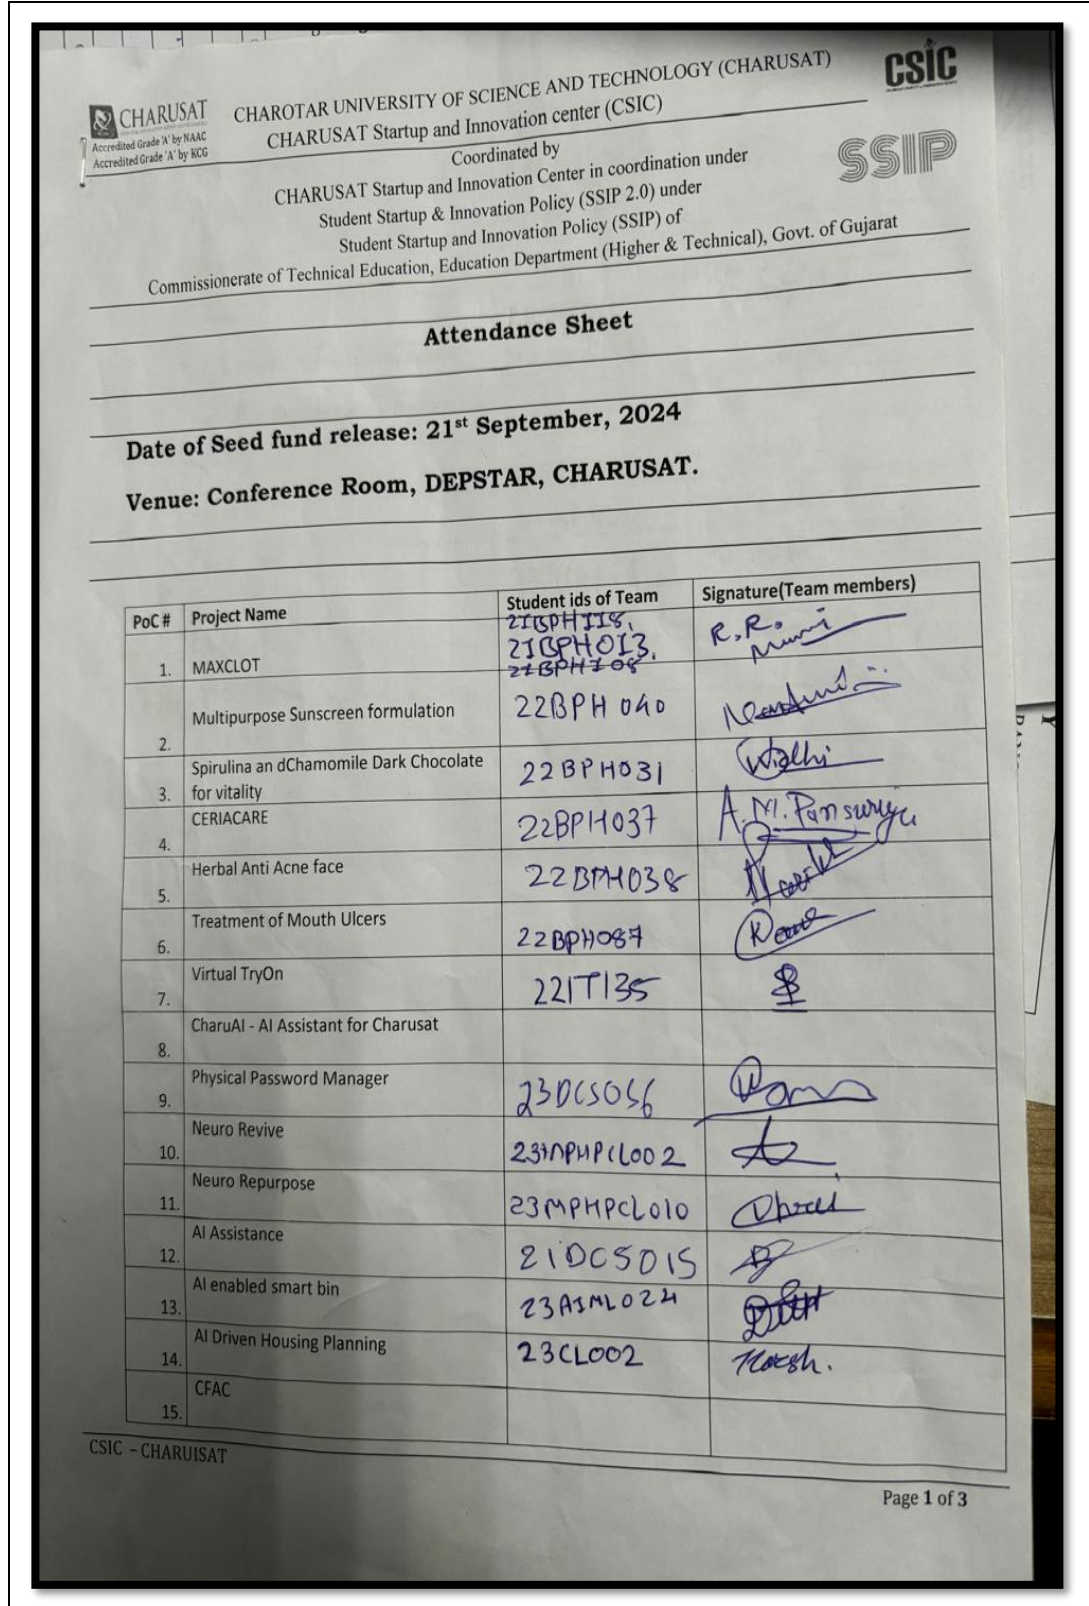 CHARUSAT
Accredited Grade 'A' by NAAC
Accredited Grade 'A' by KCG
CHAROTAR UNIVERSITY OF SCIENCE AND TECHNOLOGY (CHARUSAT)
CHARUSAT Startup and Innovation center (CSIC)
CSIC
SSIP
Coordinated by
CHARUSAT Startup and Innovation Center in coordination under
Student Startup & Innovation Policy (SSIP 2.0) under
Student Startup and Innovation Policy (SSIP) of
Commissionerate of Technical Education, Education Department (Higher & Technical), Govt. of Gujarat
Attendance Sheet
Date of Seed fund release: 21st September, 2024
Venue: Conference Room, DEPSTAR, CHARUSAT.
PoC # Project Name Student ids of Team Signature(Team members)
21BPH118,
21BPH013,
21BPH108
1. MAXCLOT R.R.
2. Multipurpose Sunscreen formulation 22BPH040
3. Spirulina an dChamomile Dark Chocolate 22BPH031 Widhi
for vitality
4. CERIACARE 22BPH037 A.M. Pansuriya
5. Herbal Anti Acne face 22BPH038
6. Treatment of Mouth Ulcers 22BPH087
7. Virtual TryOn 22IT135
8. CharuAI - AI Assistant for Charusat
9. Physical Password Manager 23DCS056
10. Neuro Revive 23MPHPCL002
11. Neuro Repurpose 23MPHPCL010
12. AI Assistance 21DCS015
13. AI enabled smart bin 23AIML024
14. AI Driven Housing Planning 23CL002 Harsh.
15. CFAC
CSIC – CHARUISAT
Page 1 of 3